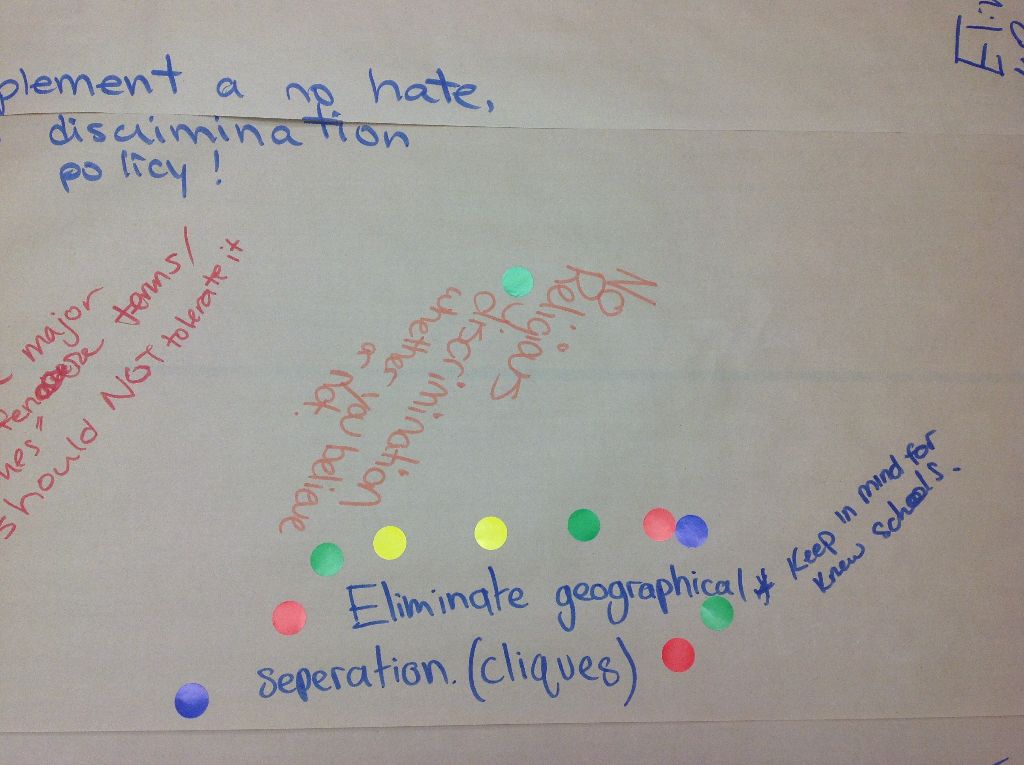 plement a no hate,
discrimination
policy!
major
terms/
should NOT tolerate it
No
Religious
discrimination
whether you believe
or not.
Eliminate geographical
seperation. (cliques)
* Keep in mind for
knew schools.